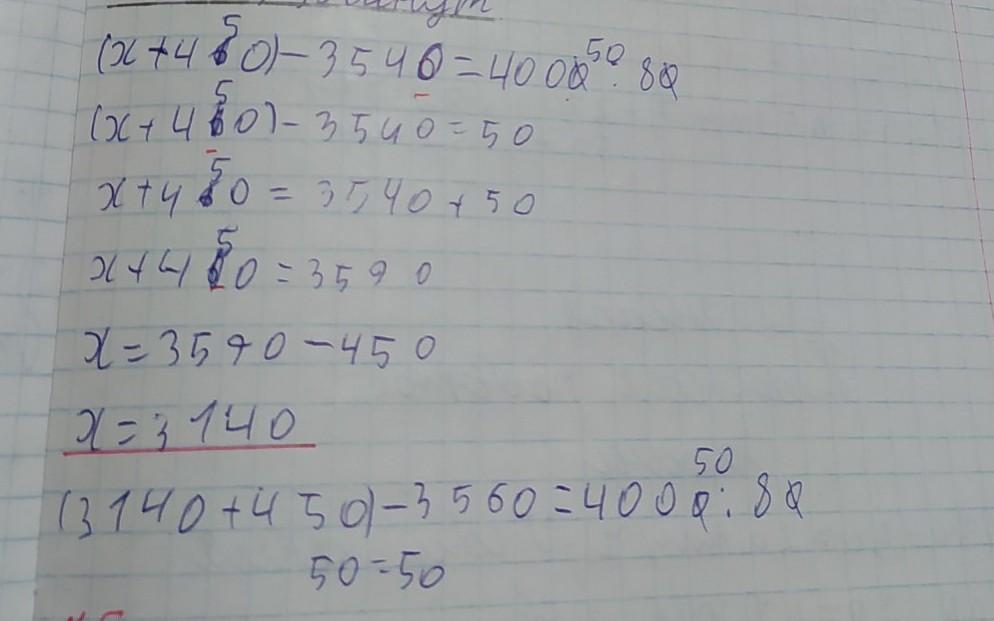 (x+450)-3540=4000:80
50
(x+450)-3540=50
x+450=3540+50
x+450=3590
x=3590-450
x=3140
50
(3140+450)-3560=4000:80
50=50